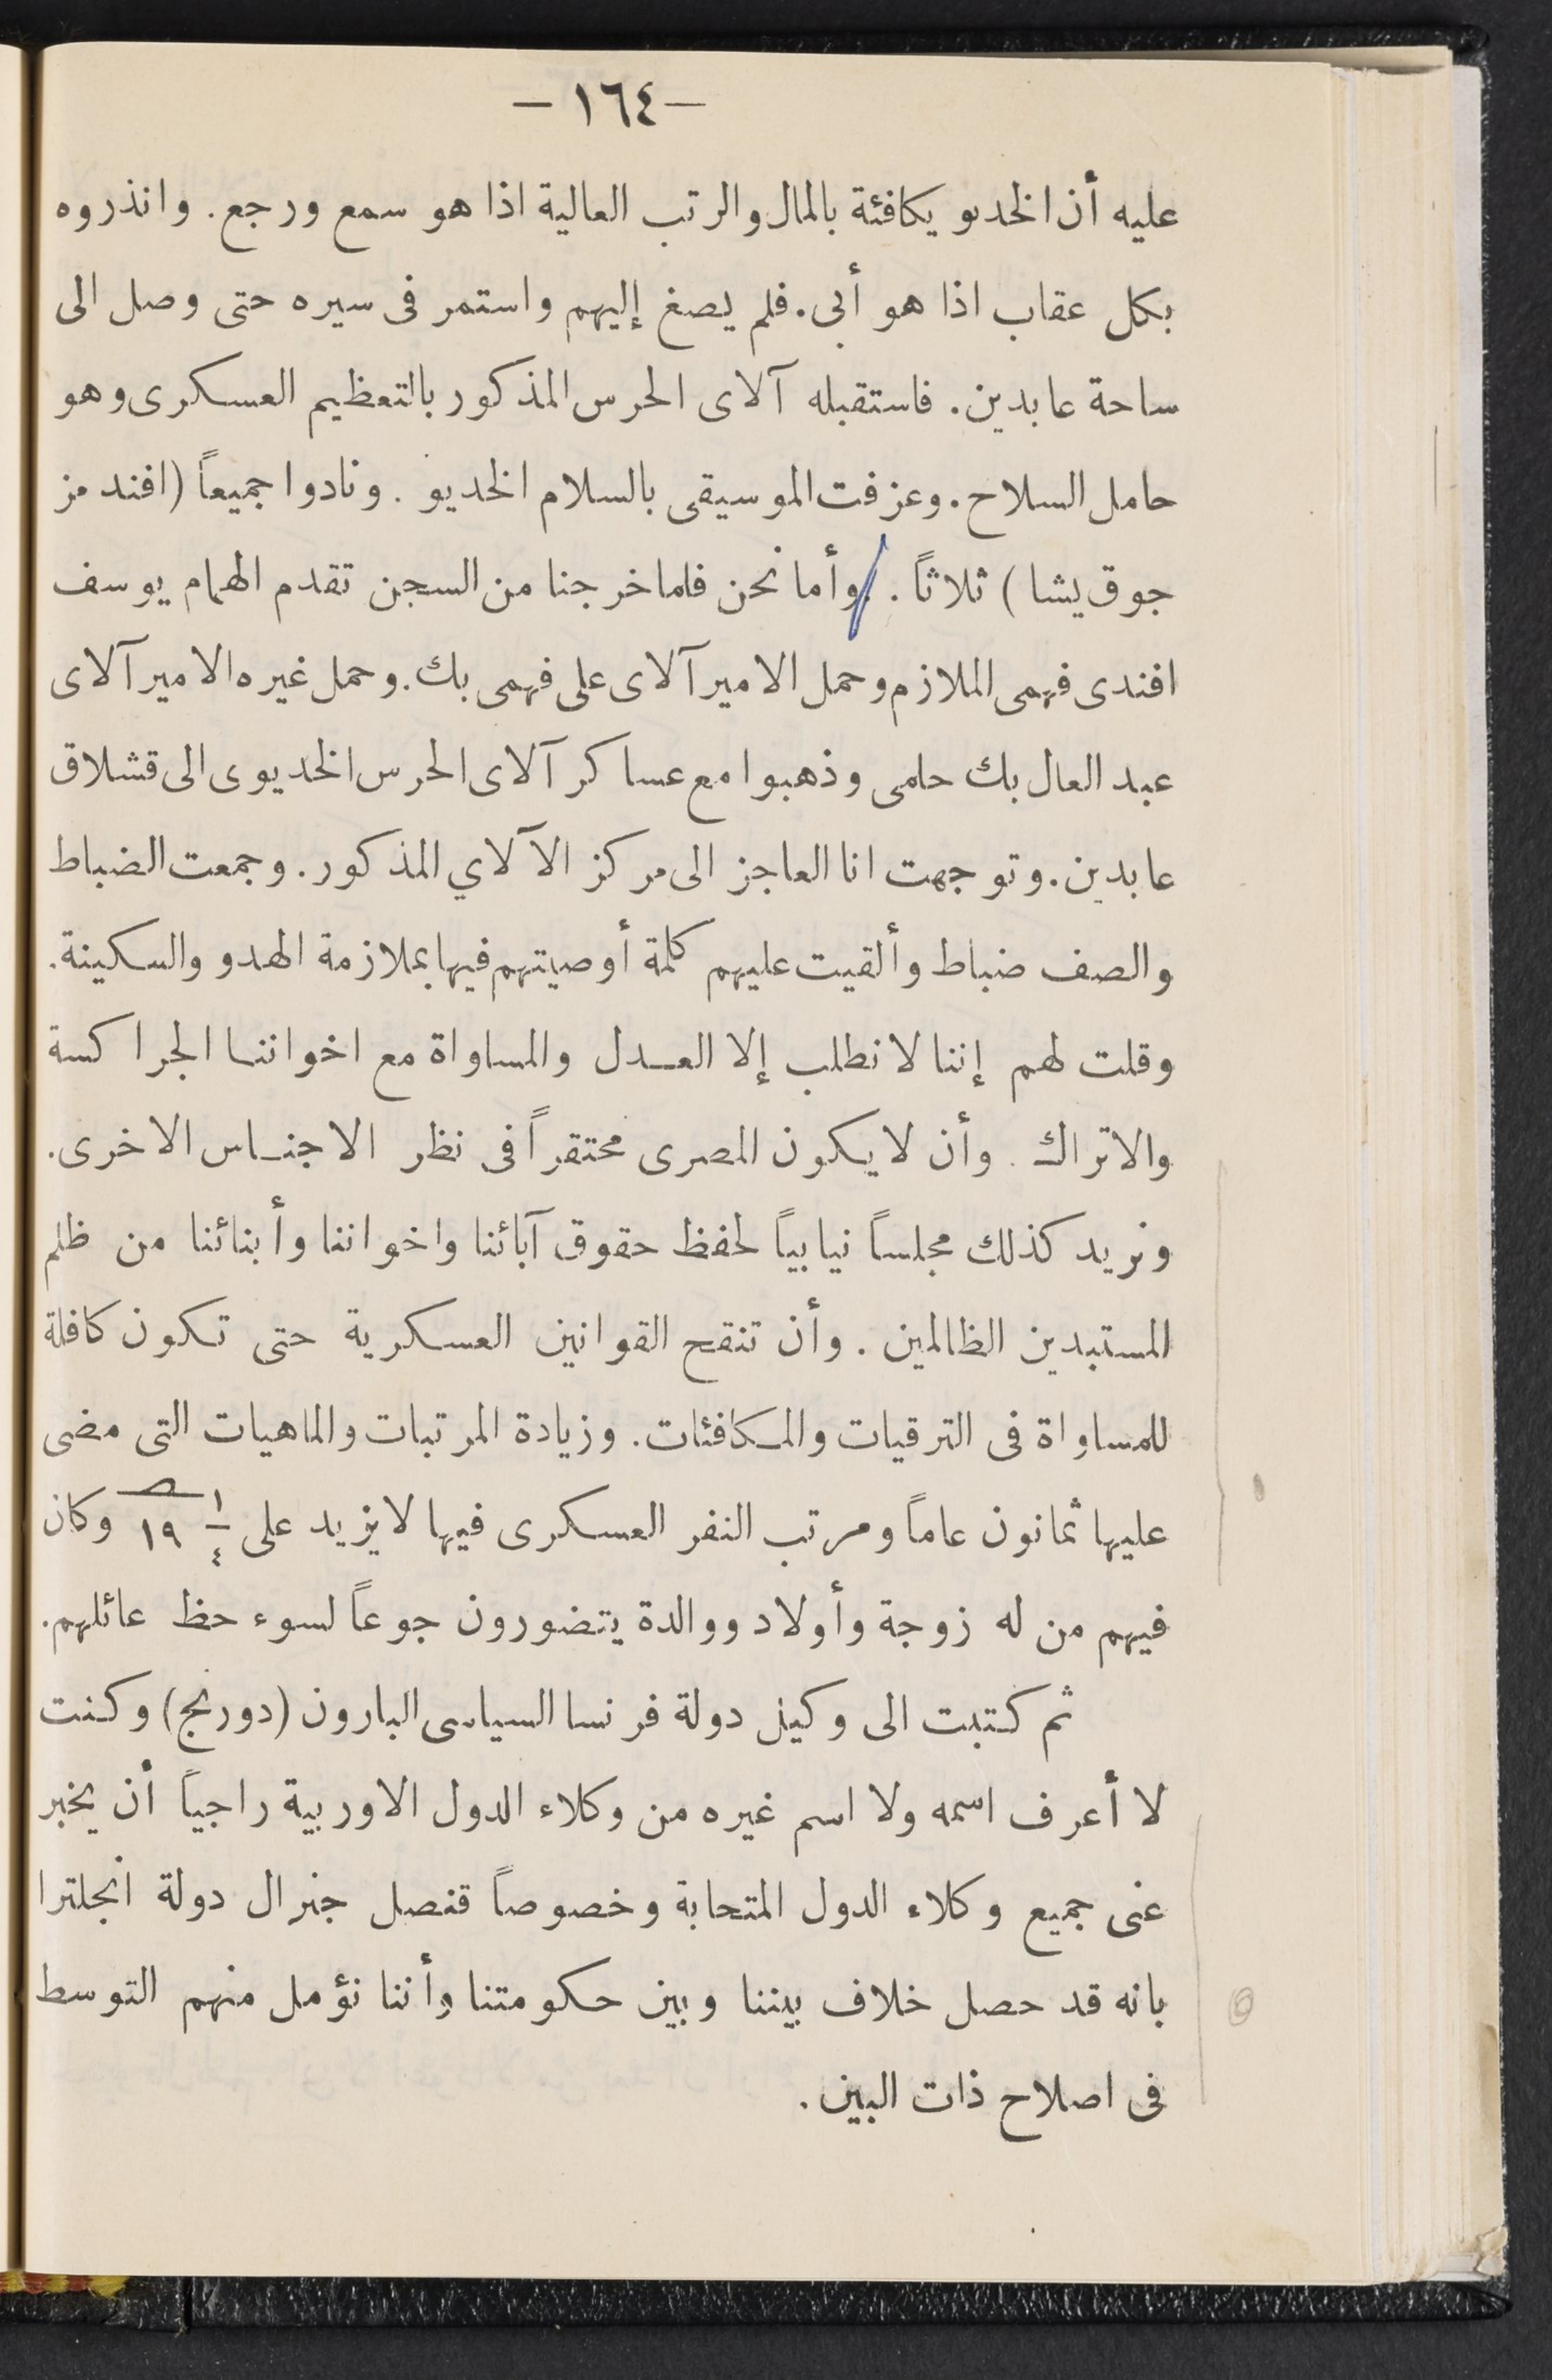 — ١٦٤ —
عليه أن الخديو يكافئة بالمال والرتب العالية اذا هو سمع ورجع. وانذروه
بكل عقاب اذا هو أبى. فلم يصغ إليهم واستمر فى سيره حتى وصل الى
ساحة عابدين. فاستقبله آلاى الحرس المذكور بالتعظيم العسكرى وهو
حامل السلاح. وعزفت الموسيقى بالسلام الخديو. ونادوا جميعاً (افندمز
جوق يشا) ثلاثاً. وأما نحن فلما خرجنا من السجن تقدم الهمام يوسف
افندى فهمى الملازم وحمل الاميرآلاى على فهمى بك. وحمل غيره الاميرآلاى
عبد العال بك حلمى وذهبوا مع عساكر آلاى الحرس الخديوى الى قشلاق
عابدين. وتوجهت انا العاجز الى مركز الآلاي المذكور. وجمعت الضباط
والصف ضباط وألقيت عليهم كلمة أوصيتهم فيها بملازمة الهدو والسكينة.
وقلت لهم إننا لا نطلب إلا العـدل والمساواة مع اخواننا الجراكسة
والاتراك. وأن لا يكون المصرى محتقراً فى نظر الاجنـاس الاخرى.
ونريد كذلك مجلساً نيابياً لحفظ حقوق آبائنا واخواننا وأبنائنا من ظلم
المستبدين الظالمين. وأن تنقح القوانين العسكرية حتى تكون كافلة
للمساواة فى الترقيات والمكافئات. وزيادة المرتبات والماهيات التى مضى
عليها ثمانون عاماً ومرتب النفر العسكرى فيها لا يزيد على ١/٤ ١٩ وكان
فيهم من له زوجة وأولاد ووالدة يتضورون جوعاً لسوء حظ عائلهم.
ثم كتبت الى وكيل دولة فرنسا السياسى البارون (دورنج) وكنت
لا أعرف اسمه ولا اسم غيره من وكلاء الدول الاوربية راجياً أن يخبر
عنى جميع وكلاء الدول المتحابة وخصوصاً قنصل جنرال دولة انجلترا
بانه قد حصل خلاف بيننا وبين حكومتنا وأننا نؤمل منهم التوسط
فى اصلاح ذات البين.